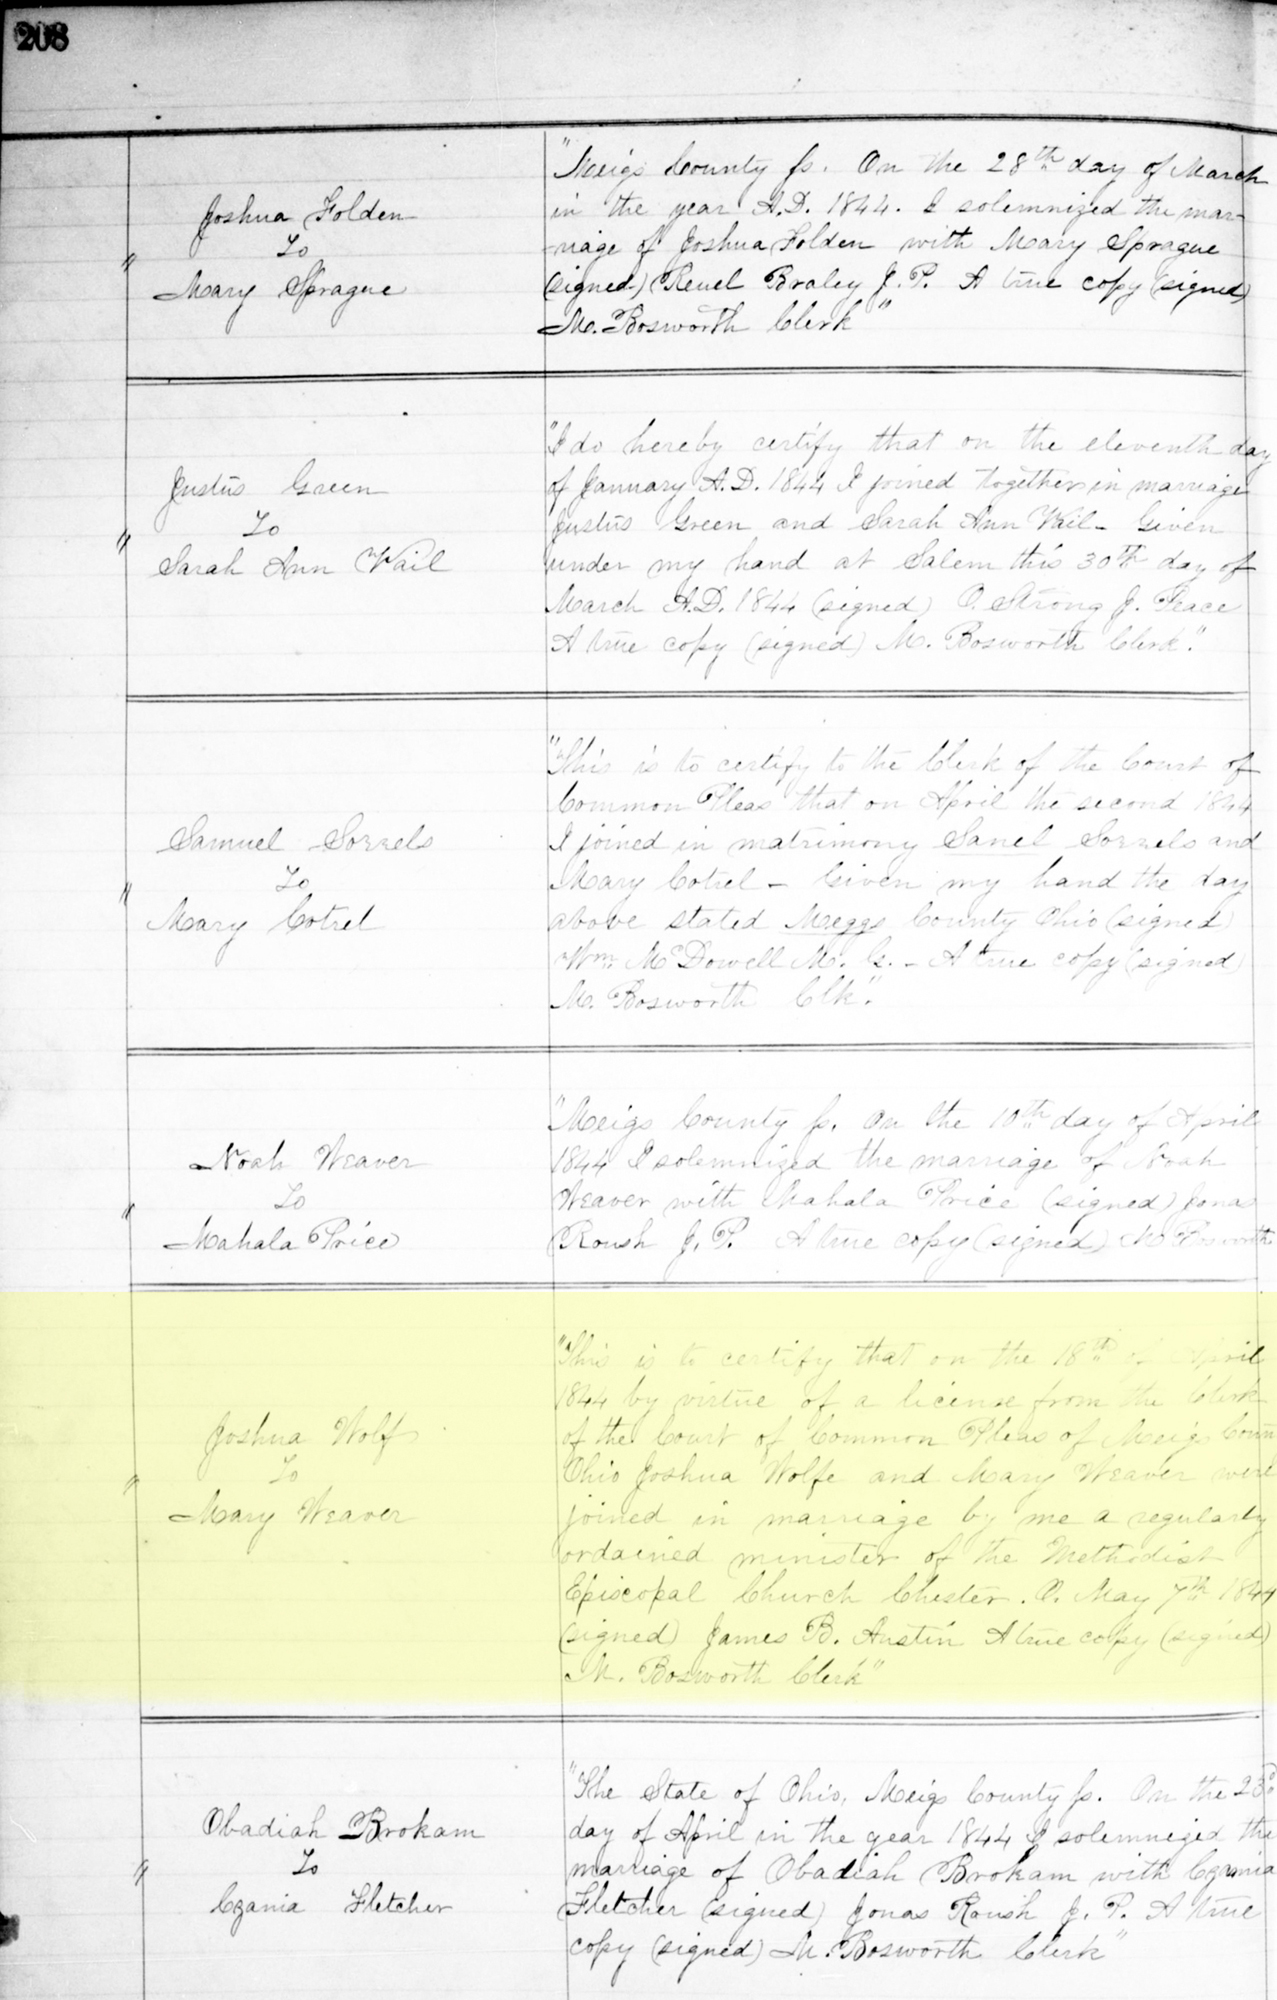 208
"Meigs County ss. On the 28th day of March
in the year A.D. 1844. I solemnized the mar-
riage of Joshua Folden with Mary Sprague
(signed) Reuel Braley J. P. A true copy (signed)
M. Bosworth Clerk"
Joshua Folden
To
" Mary Sprague
"I do hereby certify that on the eleventh day
of January A.D. 1844 I joined together in marriage
Justus Green and Sarah Ann Vail - Given
under my hand at Salem this 30th day of
March A.D. 1844 (signed) O. Strong J. Peace
A true copy (signed) M. Bosworth Clerk."
Justus Green
To
" Sarah Ann Vail
"This is to certify to the Clerk of the Court of
Common Pleas that on April the second 1844
I joined in matrimony Sanel Sorrels and
Mary Cotrel - Given my hand the day
above stated Meggs County Ohio (signed)
Wm. McDowell M. G. - A true copy (signed)
M. Bosworth Clk."
Samuel Sorrels
To
" Mary Cotrel
"Meigs County ss. On the 10th day of April
1844 I solemnized the marriage of Noah
Weaver with Mahala Price (signed) Jonas
Roush J. P. A true copy (signed) M Bosworth
Noah Weaver
To
" Mahala Price
"This is to certify that on the 18th of April
1844 by virtue of a license from the Clerk
of the Court of Common Pleas of Meigs Coun
Ohio Joshua Wolfe and Mary Weaver were
joined in marriage by me a regularly
ordained minister of the Methodist
Episcopal Church Chester. O. May 7th 1844
(signed) James B. Austin A true copy (signed)
M. Bosworth Clerk"
Joshua Wolf
To
" Mary Weaver
"The State of Ohio, Meigs County ss. On the 23d
day of April in the year 1844 I solemnized the
marriage of Obadiah Brokam with Czania
Fletcher (signed) Jonas Roush J. P. A true
copy (signed) M. Bosworth Clerk"
Obadiah Brokam
To
" Czania Fletcher